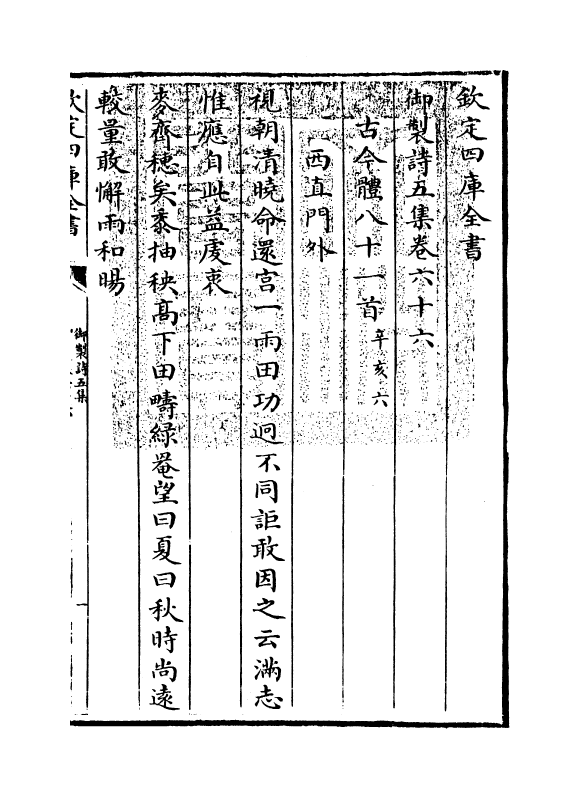 欽定四庫全書
御製詩五集卷六十六
古今體八十一首辛亥六
西直門外
視朝清曉命還宫一雨田功迥不同詎敢因之云滿志
惟應自此益虔衷
麥齊穂矣黍抽秧髙下田疇緑罨望曰夏曰秋時尚逺
較量敢懈雨和暘
欽定四庫全書
御製詩五集
一